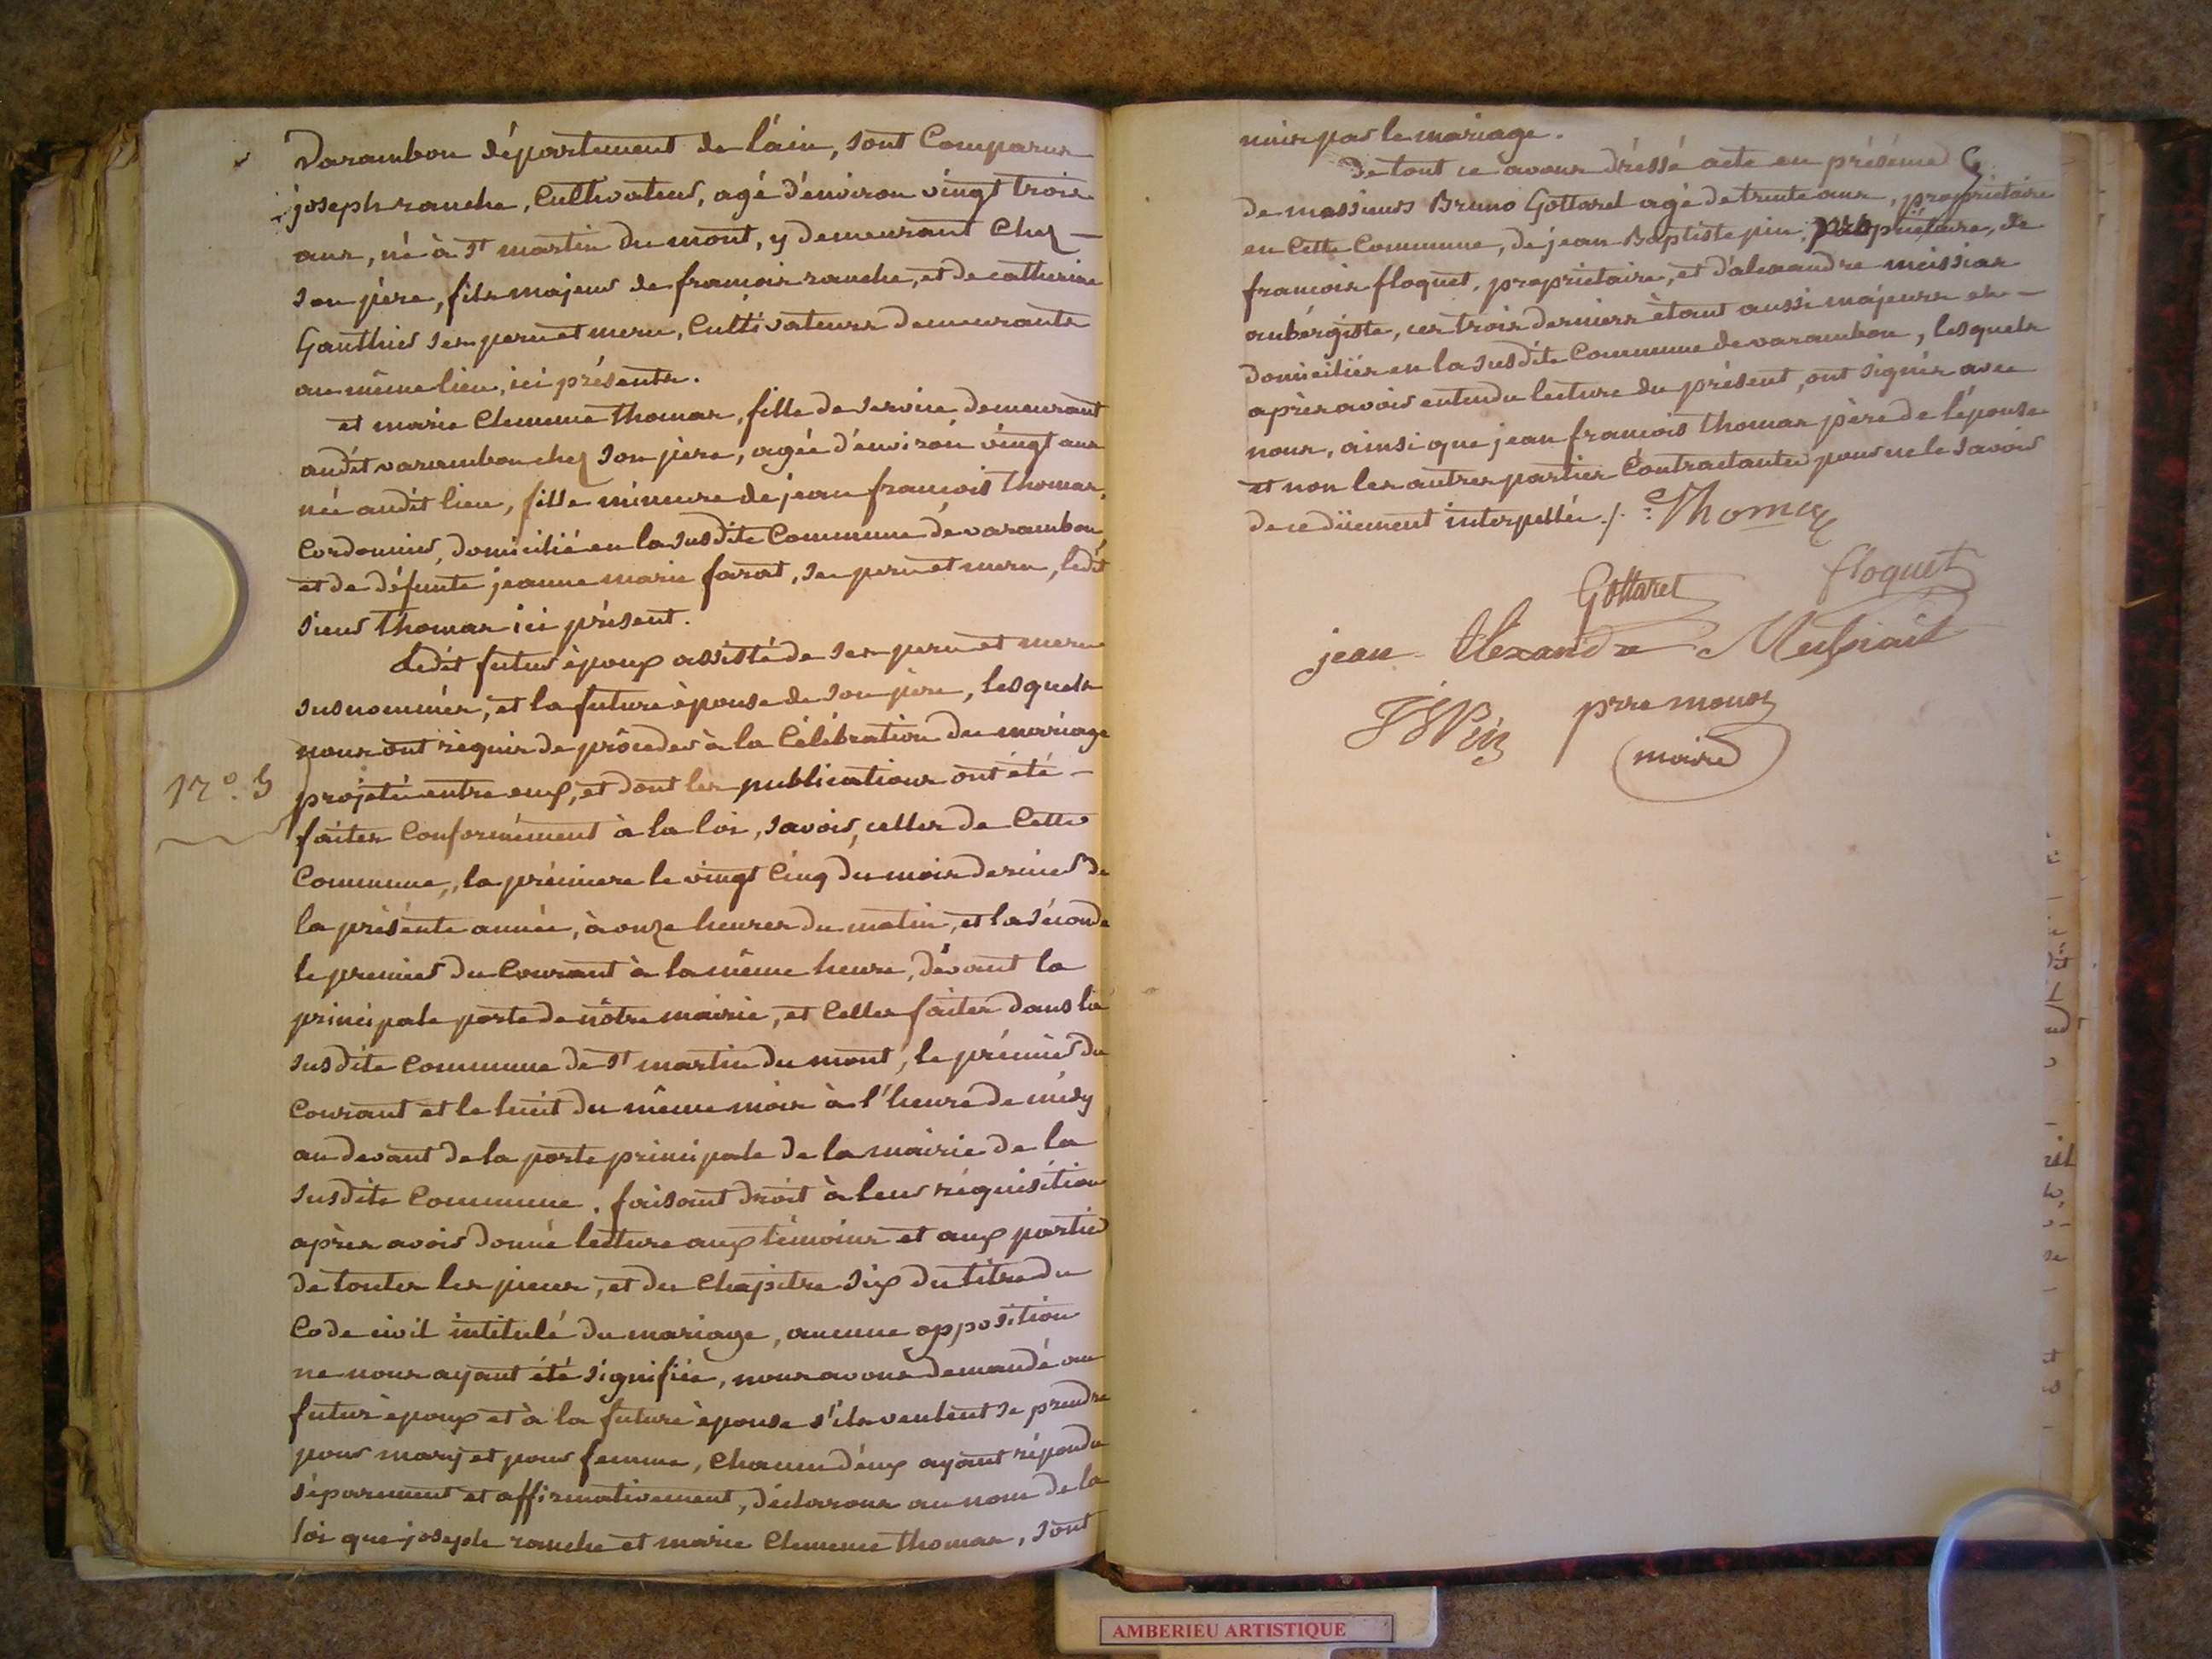 Varambon département de l'ain, sont Comparus
joseph ranche, Cultivateur, agé d'environ vingt trois
ans, né à St martin du mont, y demeurant Chez
son père, fils majeur de françois ranche, et de catherine
Gauthier ses pere et mere, Cultivateurs demeurants
au même lieu, ici présents.
et marie Clemence thomas, fille de service demeurant
audit varambon chez son père, agée d'environ vingt ans
née audit lieu, fille mineure de jean francois thomas,
Cordonnier, domicilié en la susdite Commune de varambon,
et de défunte jeanne marie farat, ses pere et mere, ledit
sieur thomas ici présent.
Ledit futur époux assisté de ses pere et mere
susnommés, et la future épouse de son père, lesquels
nous ont réquis de procéder à la Célébration du mariage
No. 5
projeté entre eux, et dont les publications ont été
faites Conformément à la loi, savoir, celles de Cette
Commune, la première le vingt Cinq du mois dernier de
la présente année, à onze heures du matin, et la séconde
le premier du Courant à la même heure, dévant la
principale porte de nôtre mairie, et Celles faites dans la
susdite Commune de St martin du mont, le prémier du
Courant et le huit du même mois à l'heure de midy
au devant de la porte principale de la mairie de la
susdite Commune. faisant droit à leur réquisition
après avoir donné lecture aux témoins et aux parties
de toutes les pieces, et du Chapitre six du titre du
Code civil intitulé du mariage, aucune opposition
ne nous ayant été signifiée, nous avons demandé au
futur époux et à la future épouse s'ils veulent se prendre
pour mary et pour femme, Chacun d'eux ayant répondu
séparement et affirmativement, déclarons au nom de la
loi que joseph ranche et marie Clemence thomas, sont
unis par le mariage.
de tout ce avons dréssé acte en présence
de messieurs Bruno Gottaret agé de trente ans, propriétaire
en Cette Commune, de jean Baptiste pin, propriétaire, de
francois floquet, propriétaire, et d'alexandre meissiat
aubérgiste, ces trois derniers étant aussi majeurs et
domiciliés en la susdite Commune de varambon, lesquels
après avoir entendu lecture du présent, ont signés avec
nous, ainsi que jean francois thomas père de l'épouse
et non les autres parties Contractantes pour ne le savoir
de ce düement interpellés ./. Thomas
Gottaret floquet
jean Alexandre Meissiait
JB Pin prre monoz
maire
AMBERIEU ARTISTIQUE